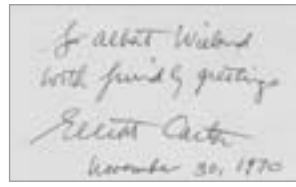 To Albert Wieland
with friendly greetings
Elliott Carter
November 30, 1970